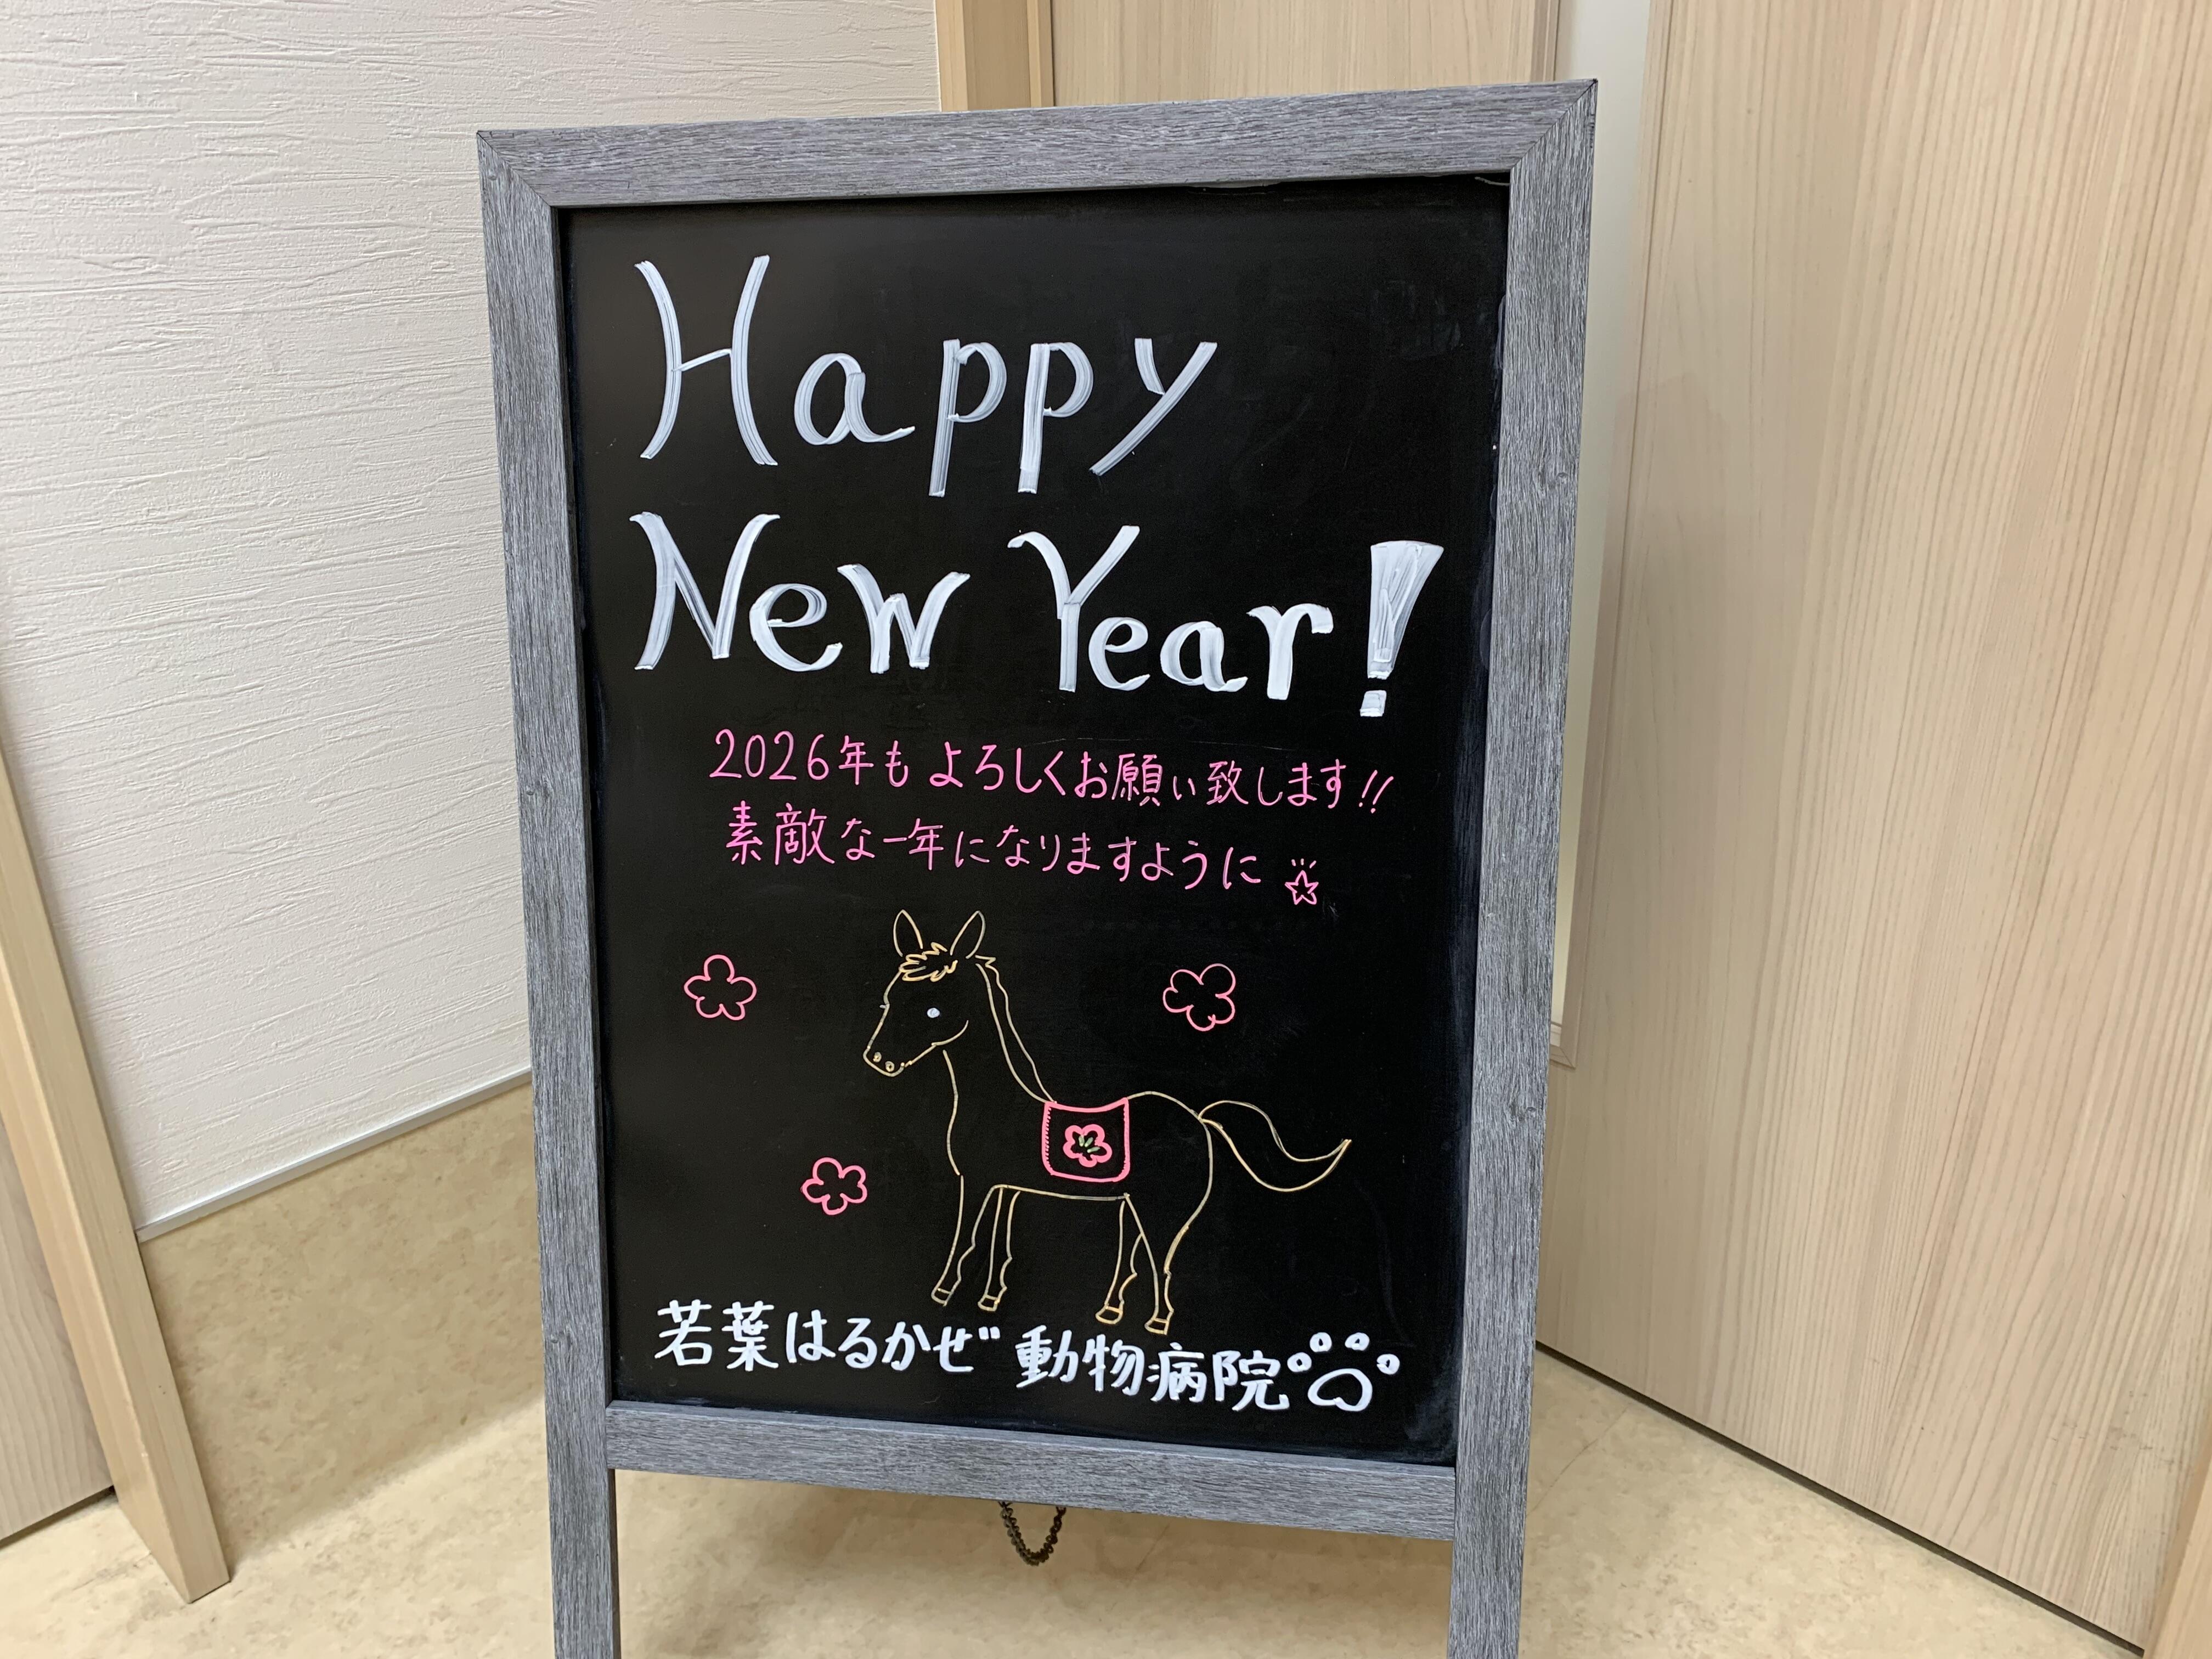 Happy
New Year!
2026年もよろしくお願い致します!!
素敵な一年になりますように☆
若葉はるかぜ動物病院